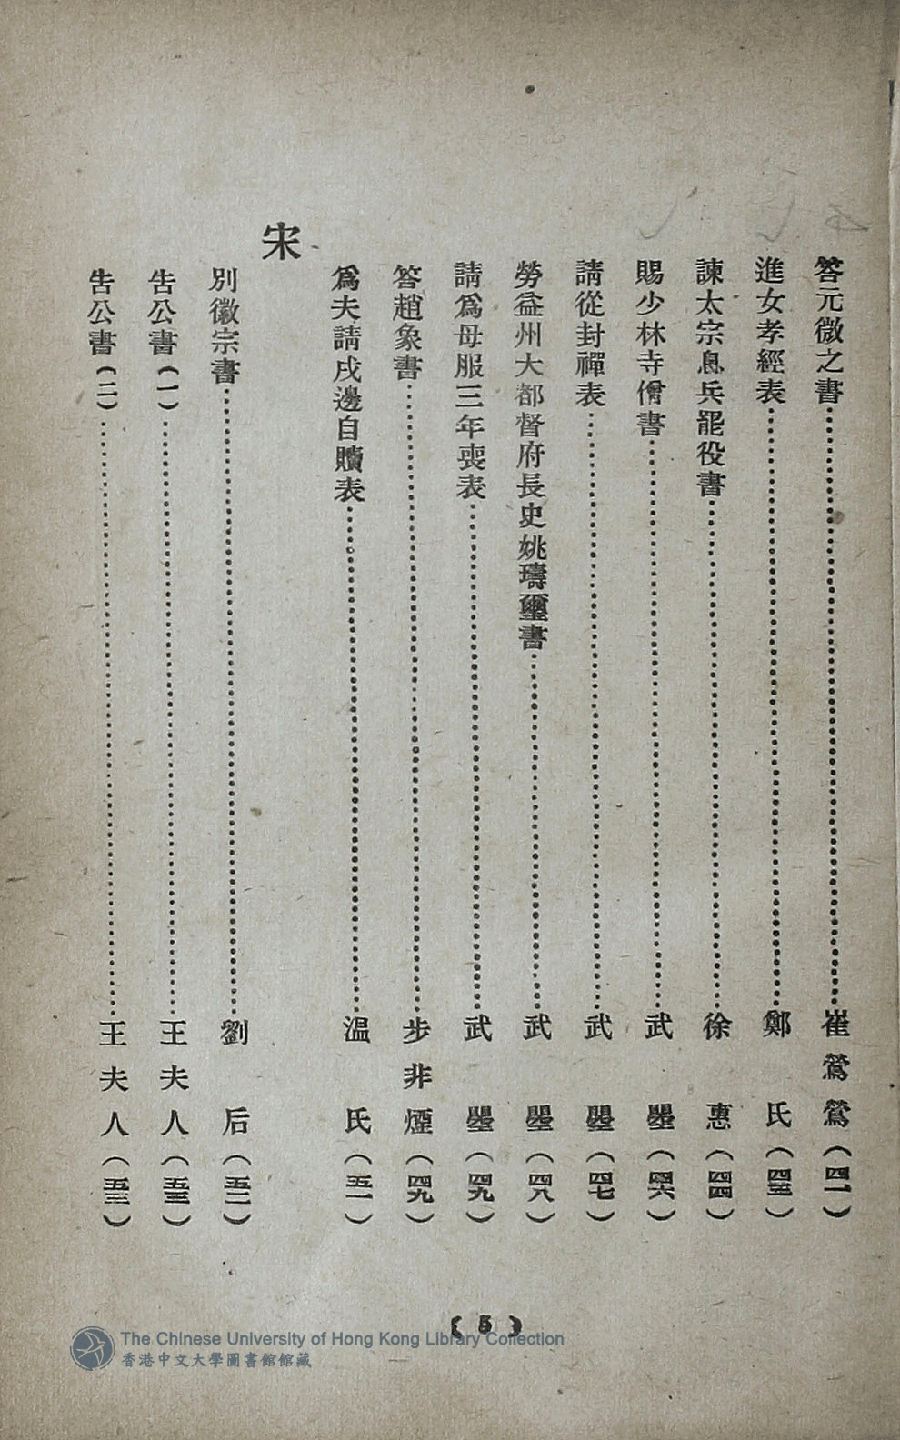 答元微之書……崔鶯鶯（四一）
進女孝經表……鄭氏（四三）
諫太宗息兵罷役書……徐惠（四四）
賜少林寺僧書……武曌（四六）
請從封禪表……武曌（四七）
勞益州大都督府長史姚璹璽書……武曌（四八）
請爲母服三年喪表……武曌（四九）
答趙象書……步非煙（四九）
爲夫請戍邊自贖表……溫氏（五一）
宋
別徽宗書……劉后（五二）
告公書（一）……王夫人（五三）
告公書（二）……王夫人（五三）
【5】
The Chinese University of Hong Kong Library Collection
香港中文大學圖書館館藏